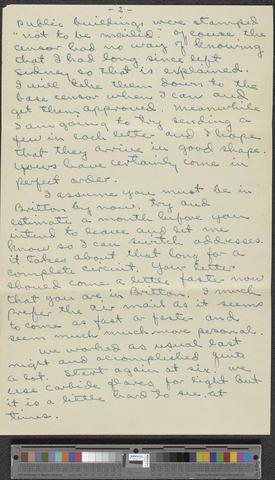 - 2 -
public buildings were stamped
"not to be mailed". Of course the
censor had no way of knowing
that I had long since left
Sidney so that is explained.
I will take them down to the
base censor when I can and
get them approved. Meanwhile
I am going to try sending a
few in each letter and I hope
that they arrive in good shape.
Yours have certainly come in
perfect order.
I assume you must be in
Britton by now. Try and
estimate a month before you
intend to leave and let me
know so I can switch addresses.
it takes about that long for a
complete circuit. Your letter
should come a little faster now
that you are in Britton. I much
prefer the air mail as it seems
to come as fast or faster and
seem much much more personal.
We worked as usual last
night and accomplished quite
a lot. Start again at six. We
use carbide flares for light but
it is a little hard to see at
times.